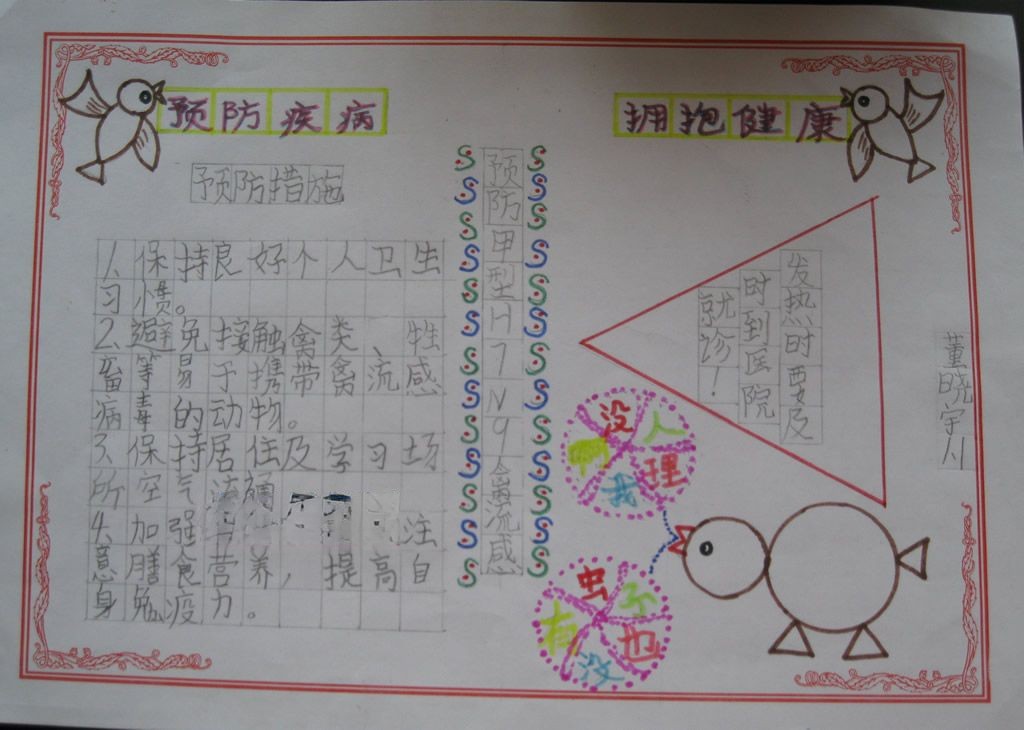 预防疾病
拥抱健康
预防措施
1、保持良好个人卫生
习惯。
2、避免接触禽类、牲
畜等易于携带禽流感
病毒的动物。
3、保持居住及学习场
所空气
4、加强 注
意膳食营养，提高自
身免疫力。
预防甲型H7N9禽流感
发热时要及
时到医院
就诊！
没人理我啊
虫子也没有
董晓宇